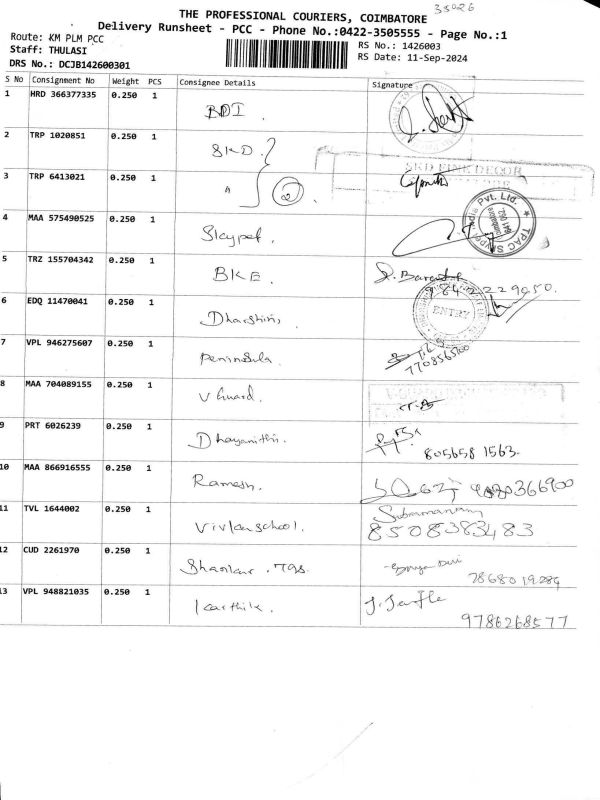 33026
THE PROFESSIONAL COURIERS, COIMBATORE
Delivery Runsheet - PCC - Phone No.:0422-3505555 - Page No.:1
Route: KM PLM PCC
Staff: THULASI
DRS No.: DCJB142600301
RS No.: 1426003
RS Date: 11-Sep-2024
S No Consignment No Weight PCS Consignee Details Signature
1 HRD 366377335 0.250 1 BDI
2 TRP 1020851 0.250 1 SKD
SKD FINE DECOR
3 TRP 6413021 0.250 1 " 2
TPAC Pvt. Ltd.
4 MAA 575490525 0.250 1 Skypet.
5 TRZ 155704342 0.250 1 BKE
9842229050.
6 EDQ 11470041 0.250 1 Dharshini
ENTRY
7 VPL 946275607 0.250 1 Peninsula
7708565700
8 MAA 704089155 0.250 1 V Guard.
9 PRT 6026239 0.250 1 Dhayanithi.
805658 1563.
10 MAA 866916555 0.250 1 Ramesh.
11 TVL 1644002 0.250 1 Vivlon school. Subramaniam
8508383483
12 CUD 2261970 0.250 1 Shankar .
7868019284
13 VPL 948821035 0.250 1 Karthik.
9786268577